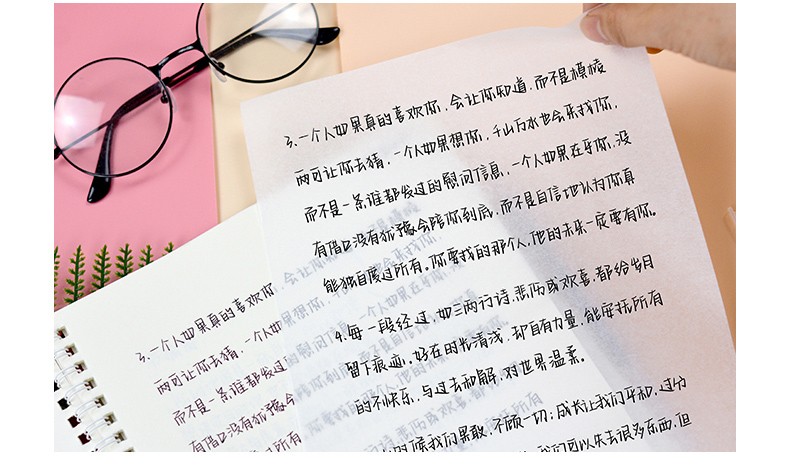 3.一个人如果真的喜欢你，会让你知道，而不是模棱
两可让你去猜，一个人如果想你，千山万水也会来找你，
而不是一条谁都发过的慰问信息，一个人如果在乎你，没
有借口没有犹豫会陪你到底，而不是自信地认为你真
能独自度过所有。你要找的那个人，他的未来一定要有你。
4.每一段经过，如三两行诗，悲伤或欢喜，都给岁月
留下痕迹，好在时光清浅，却自有力量，能安抚所有
的不快乐，与过去和解，对世界温柔。
的时候我们果敢，不顾一切；成长让我们平和，过分
我们可以失去很多东西，但
3.一个人如果真的喜欢你，会让你
两可让你去猜，一个人如果想你，
而不是一条谁都发过
有借口没有犹豫会
能独自度过所有